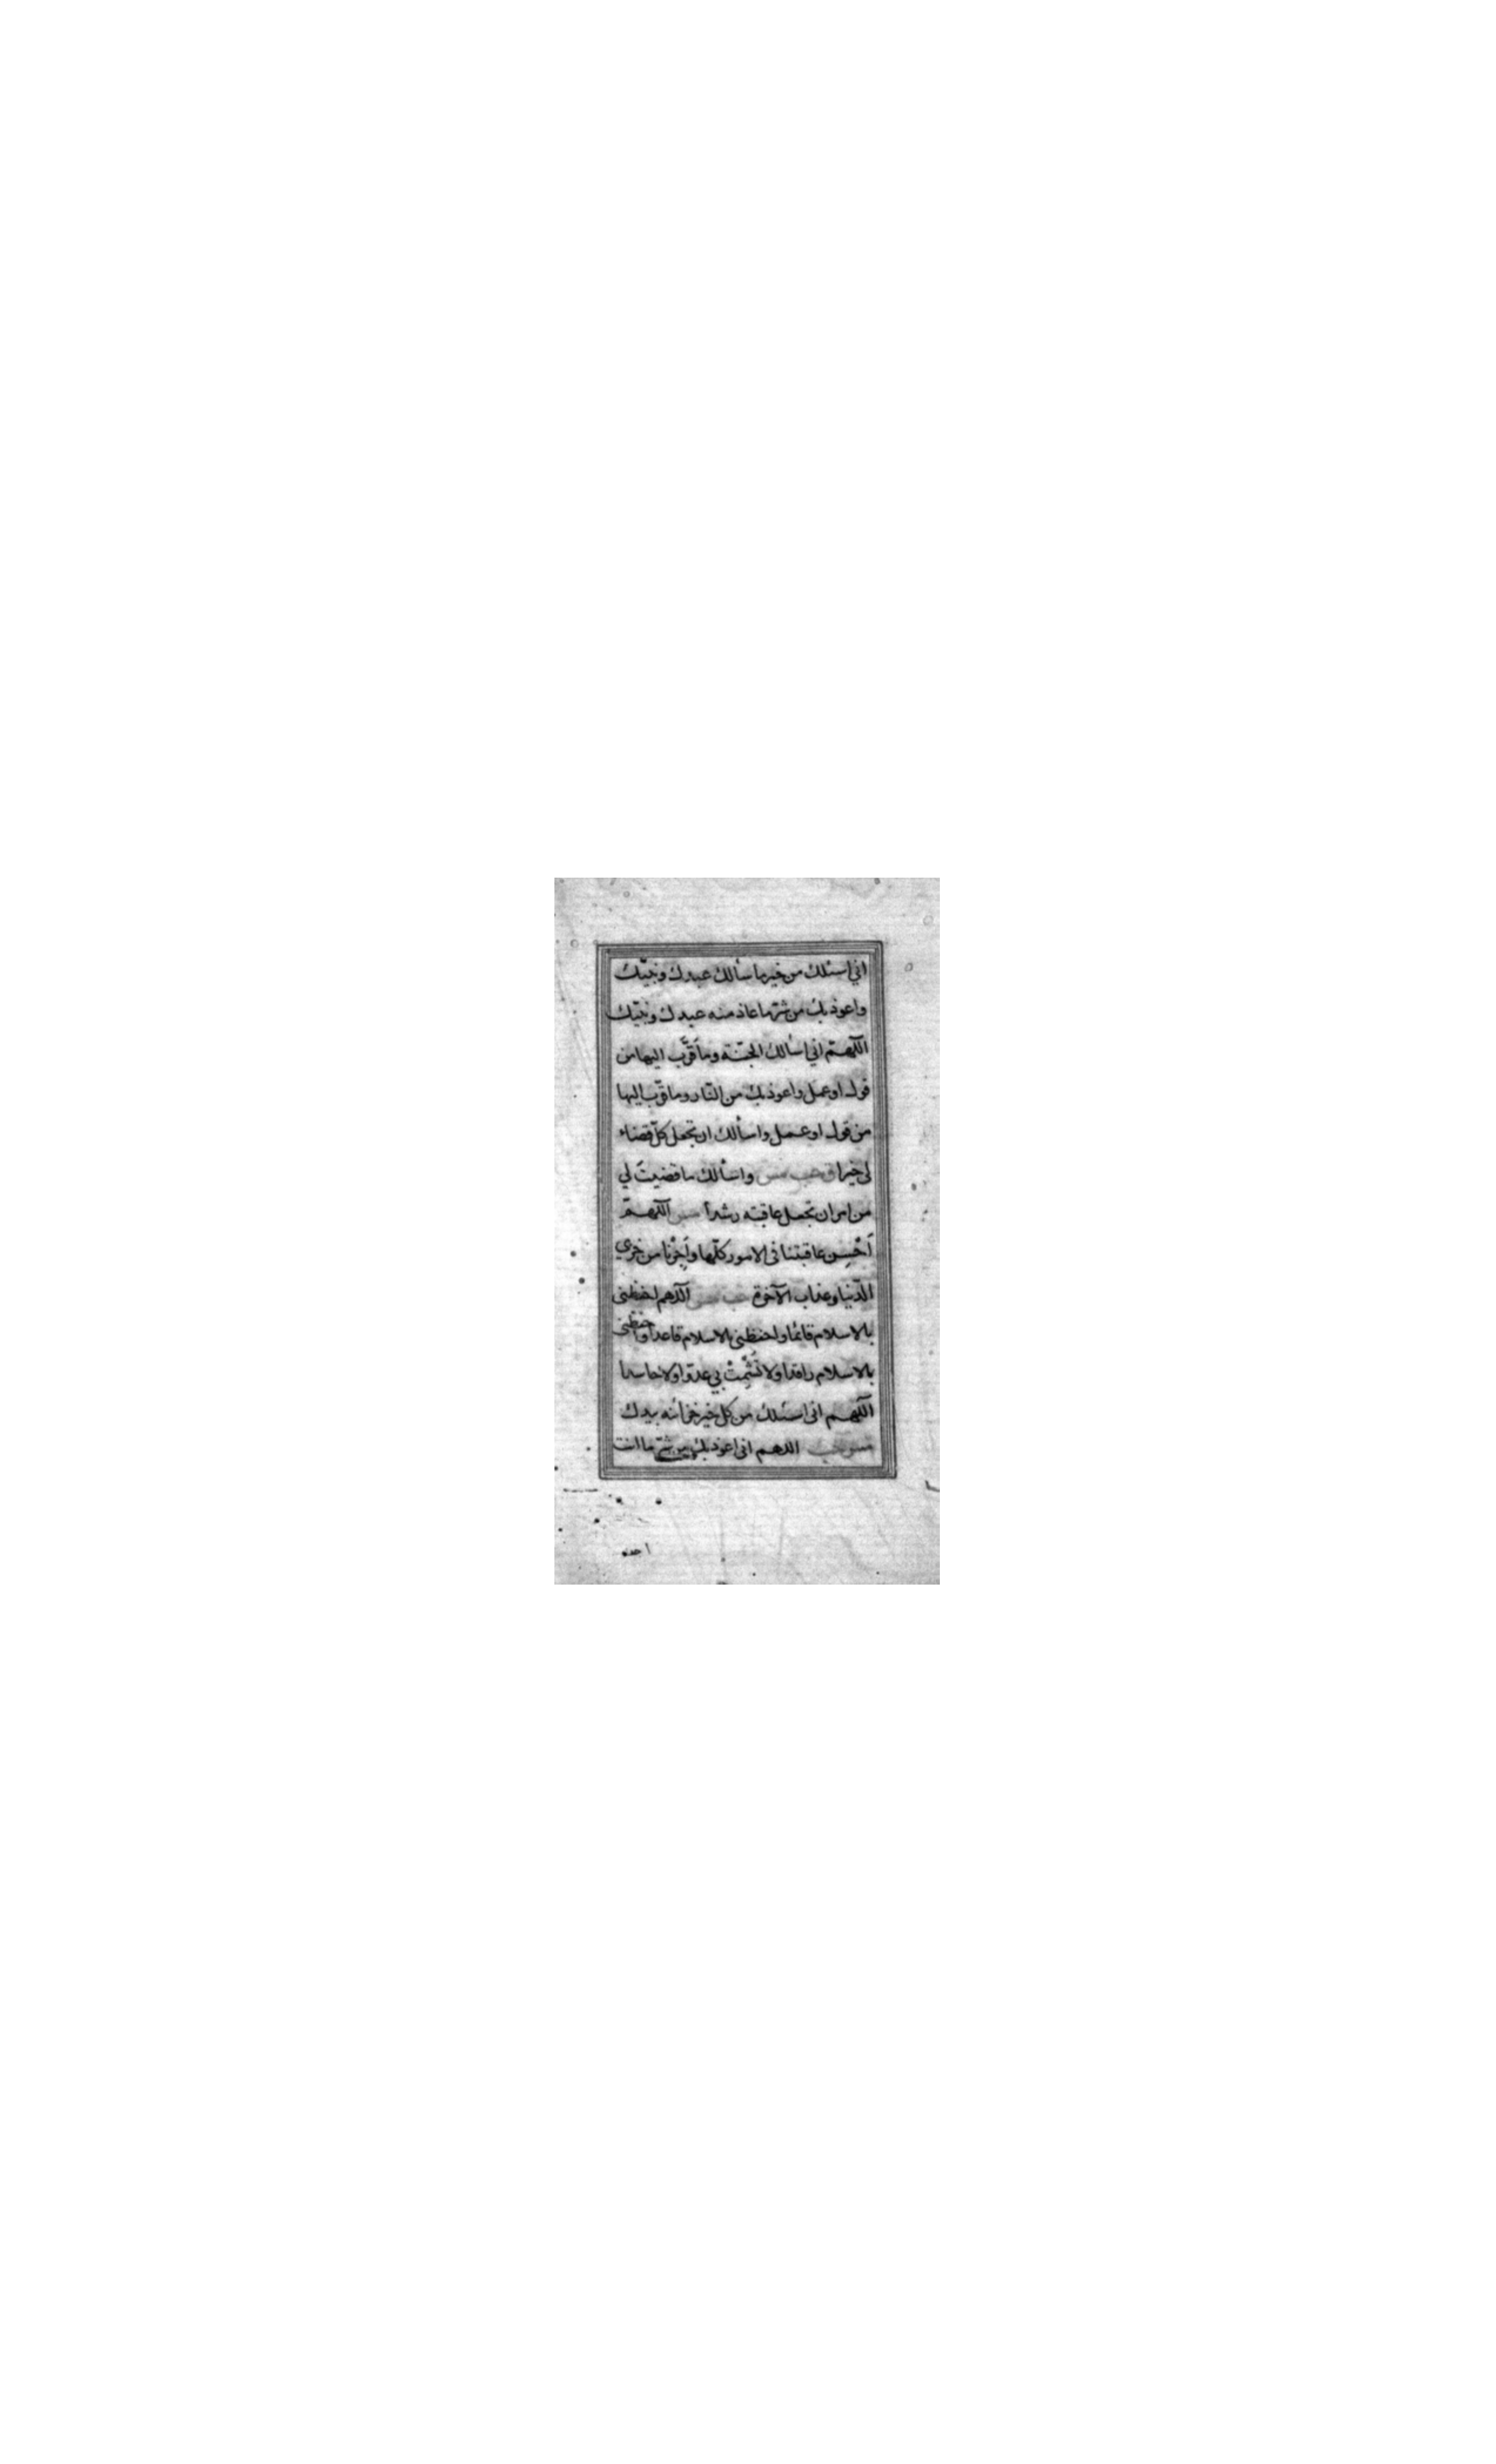 اني اسئلك من خير ما سألك عبدك ونبيّك
واعوذ بك من شرّ ما عاذ منه عبدك ونبيّك
اللّهمّ اني اسألك الجنّة وما قَرَّب اليها من
قول او عمل واعوذ بك من النّار وما قرّب اليها
من قول او عمل واسألك ان تجعل كلّ قضاء
لي خيرا ق حب مس واسألك ما قضيتَ لي
من امر ان تجعل عاقبته رشدا مس اللّهمّ
اَحْسِن عاقبتنا في الامور كلّها واَجِرْنا من خزي
الدّنيا وعذاب الآخرة حب مس اللّهم احفظني
بالاسلام قائما واحفظني بالاسلام قاعدا واحفظني
بالاسلام راقدا ولا تُشْمِتْ بي عدوّا ولا حاسدا
اللّهم اني اسئلك من كل خير خزائنه بيدك
مس حب اللهم اني اعوذ بك من شرّ ما انت